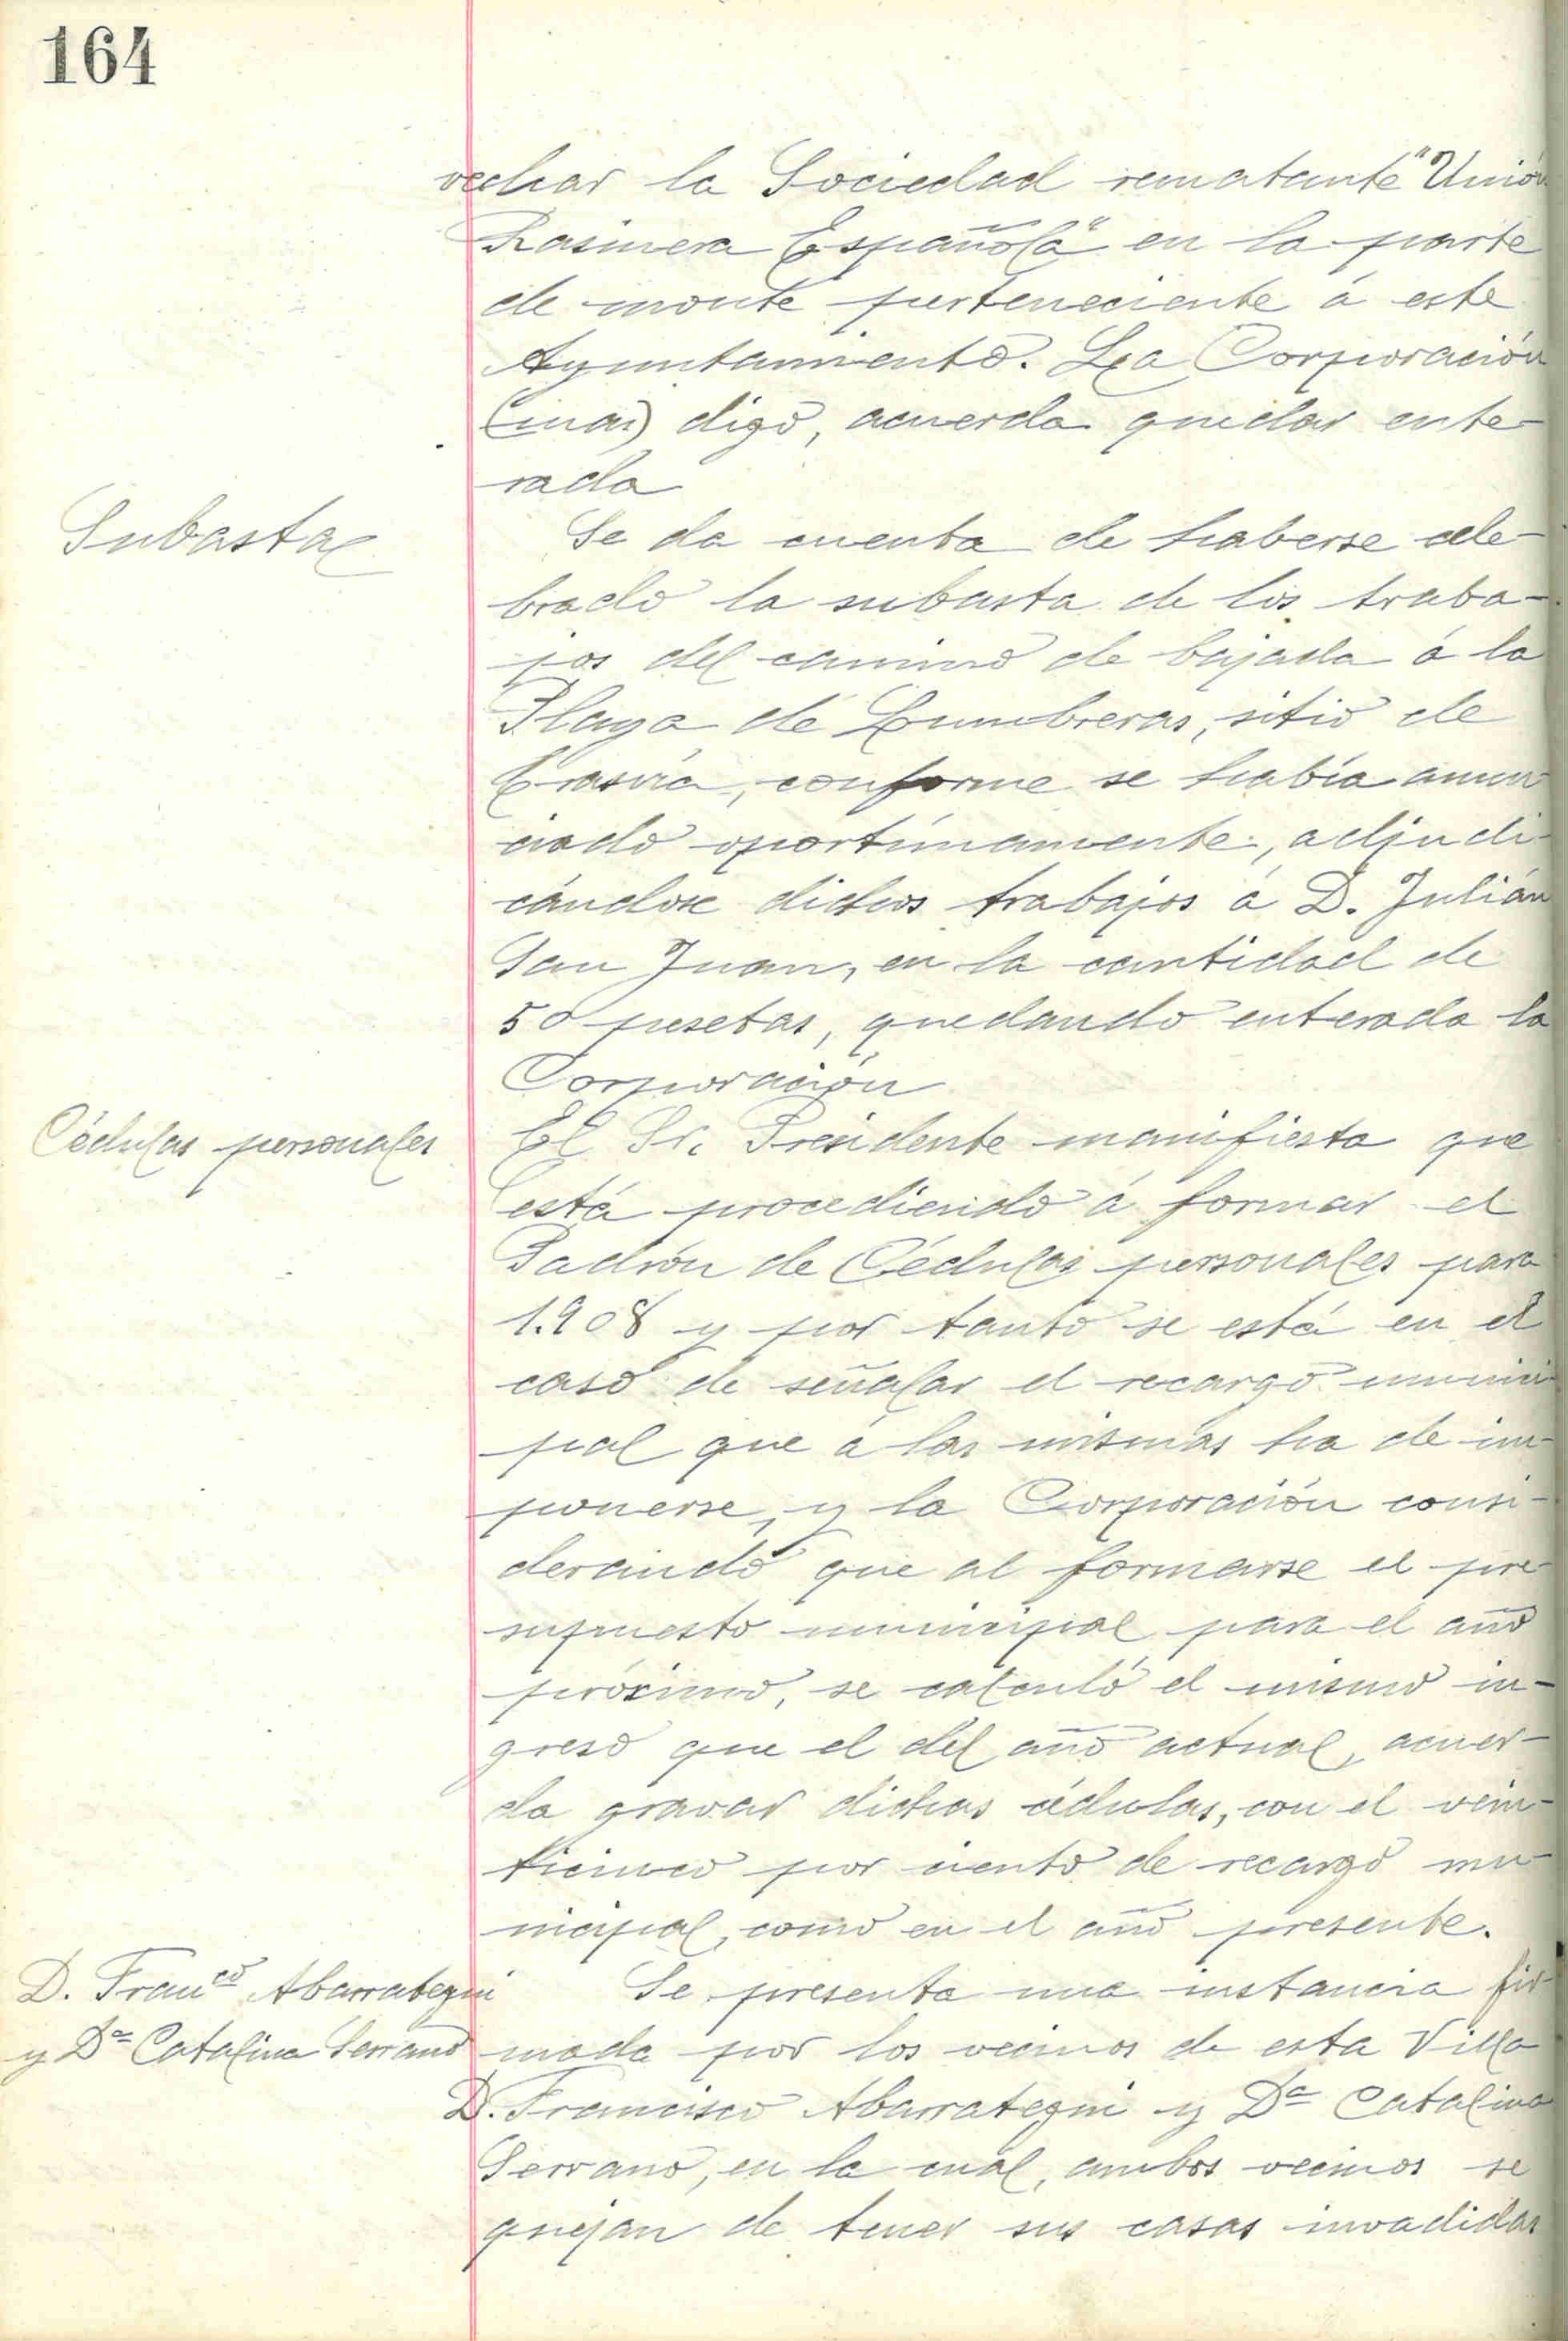 164
vechar la Sociedad rematante "Unión
Resinera Española" en la parte
de monte perteneciente á este
Ayuntamiento. La Corporación
digo, acuerda quedar ente-
rada
Subasta
Se da cuenta de haberse cele-
brado la subasta de los traba-
jos del camino de bajada á la
Playa de Cumbreras, sitio de
conforme se había anun
ciado oportúnamente, adjudi-
cándose dichos trabajos á D. Julián
San Juan, en la cantidad de
50 pesetas, quedando enterada la
Corporación
Cédulas personales
El Sr. Presidente manifiesta que
está procediendo á formar el
Padrón de Cédulas personales para
1.908 y por tanto se está en el
caso de señalar el recargo munici
pal que á las mismas ha de im-
ponerse, y la Corporación consi-
derando que al formarse el pre
supuesto municipal para el año
próximo, se calculó el mismo in-
greso que el del año actual, acuer-
da gravar dichas cédulas, con el vein-
ticinco por ciento de recargo mu-
nicipal, como en el año presente.
D. Franco Abarrategui
y Dª Catalina Serrano
Se presenta una instancia fir-
mada por los vecinos de esta Villa
D. Francisco Abarrategui y Dª Catalina
Serrano, en la cuál, ambos vecinos se
quejan de tener sus casas invadidas